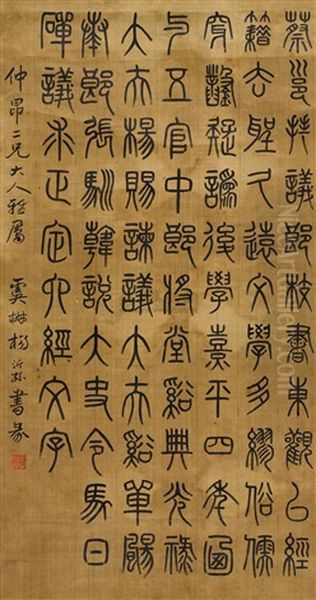 蔡邕拜議郎校書東觀㠯經
籍去聖久遠文學多繆俗儒
穿鑿疑誤後學熹平四年迺
与五官中郎將堂谿典光祿
大夫楊賜諫議大夫谿單颺
奏郎張馴韓說大史令馬日
磾議求正定六經文字
仲昂二兄大人雅屬 虞 楊沂孫書篆